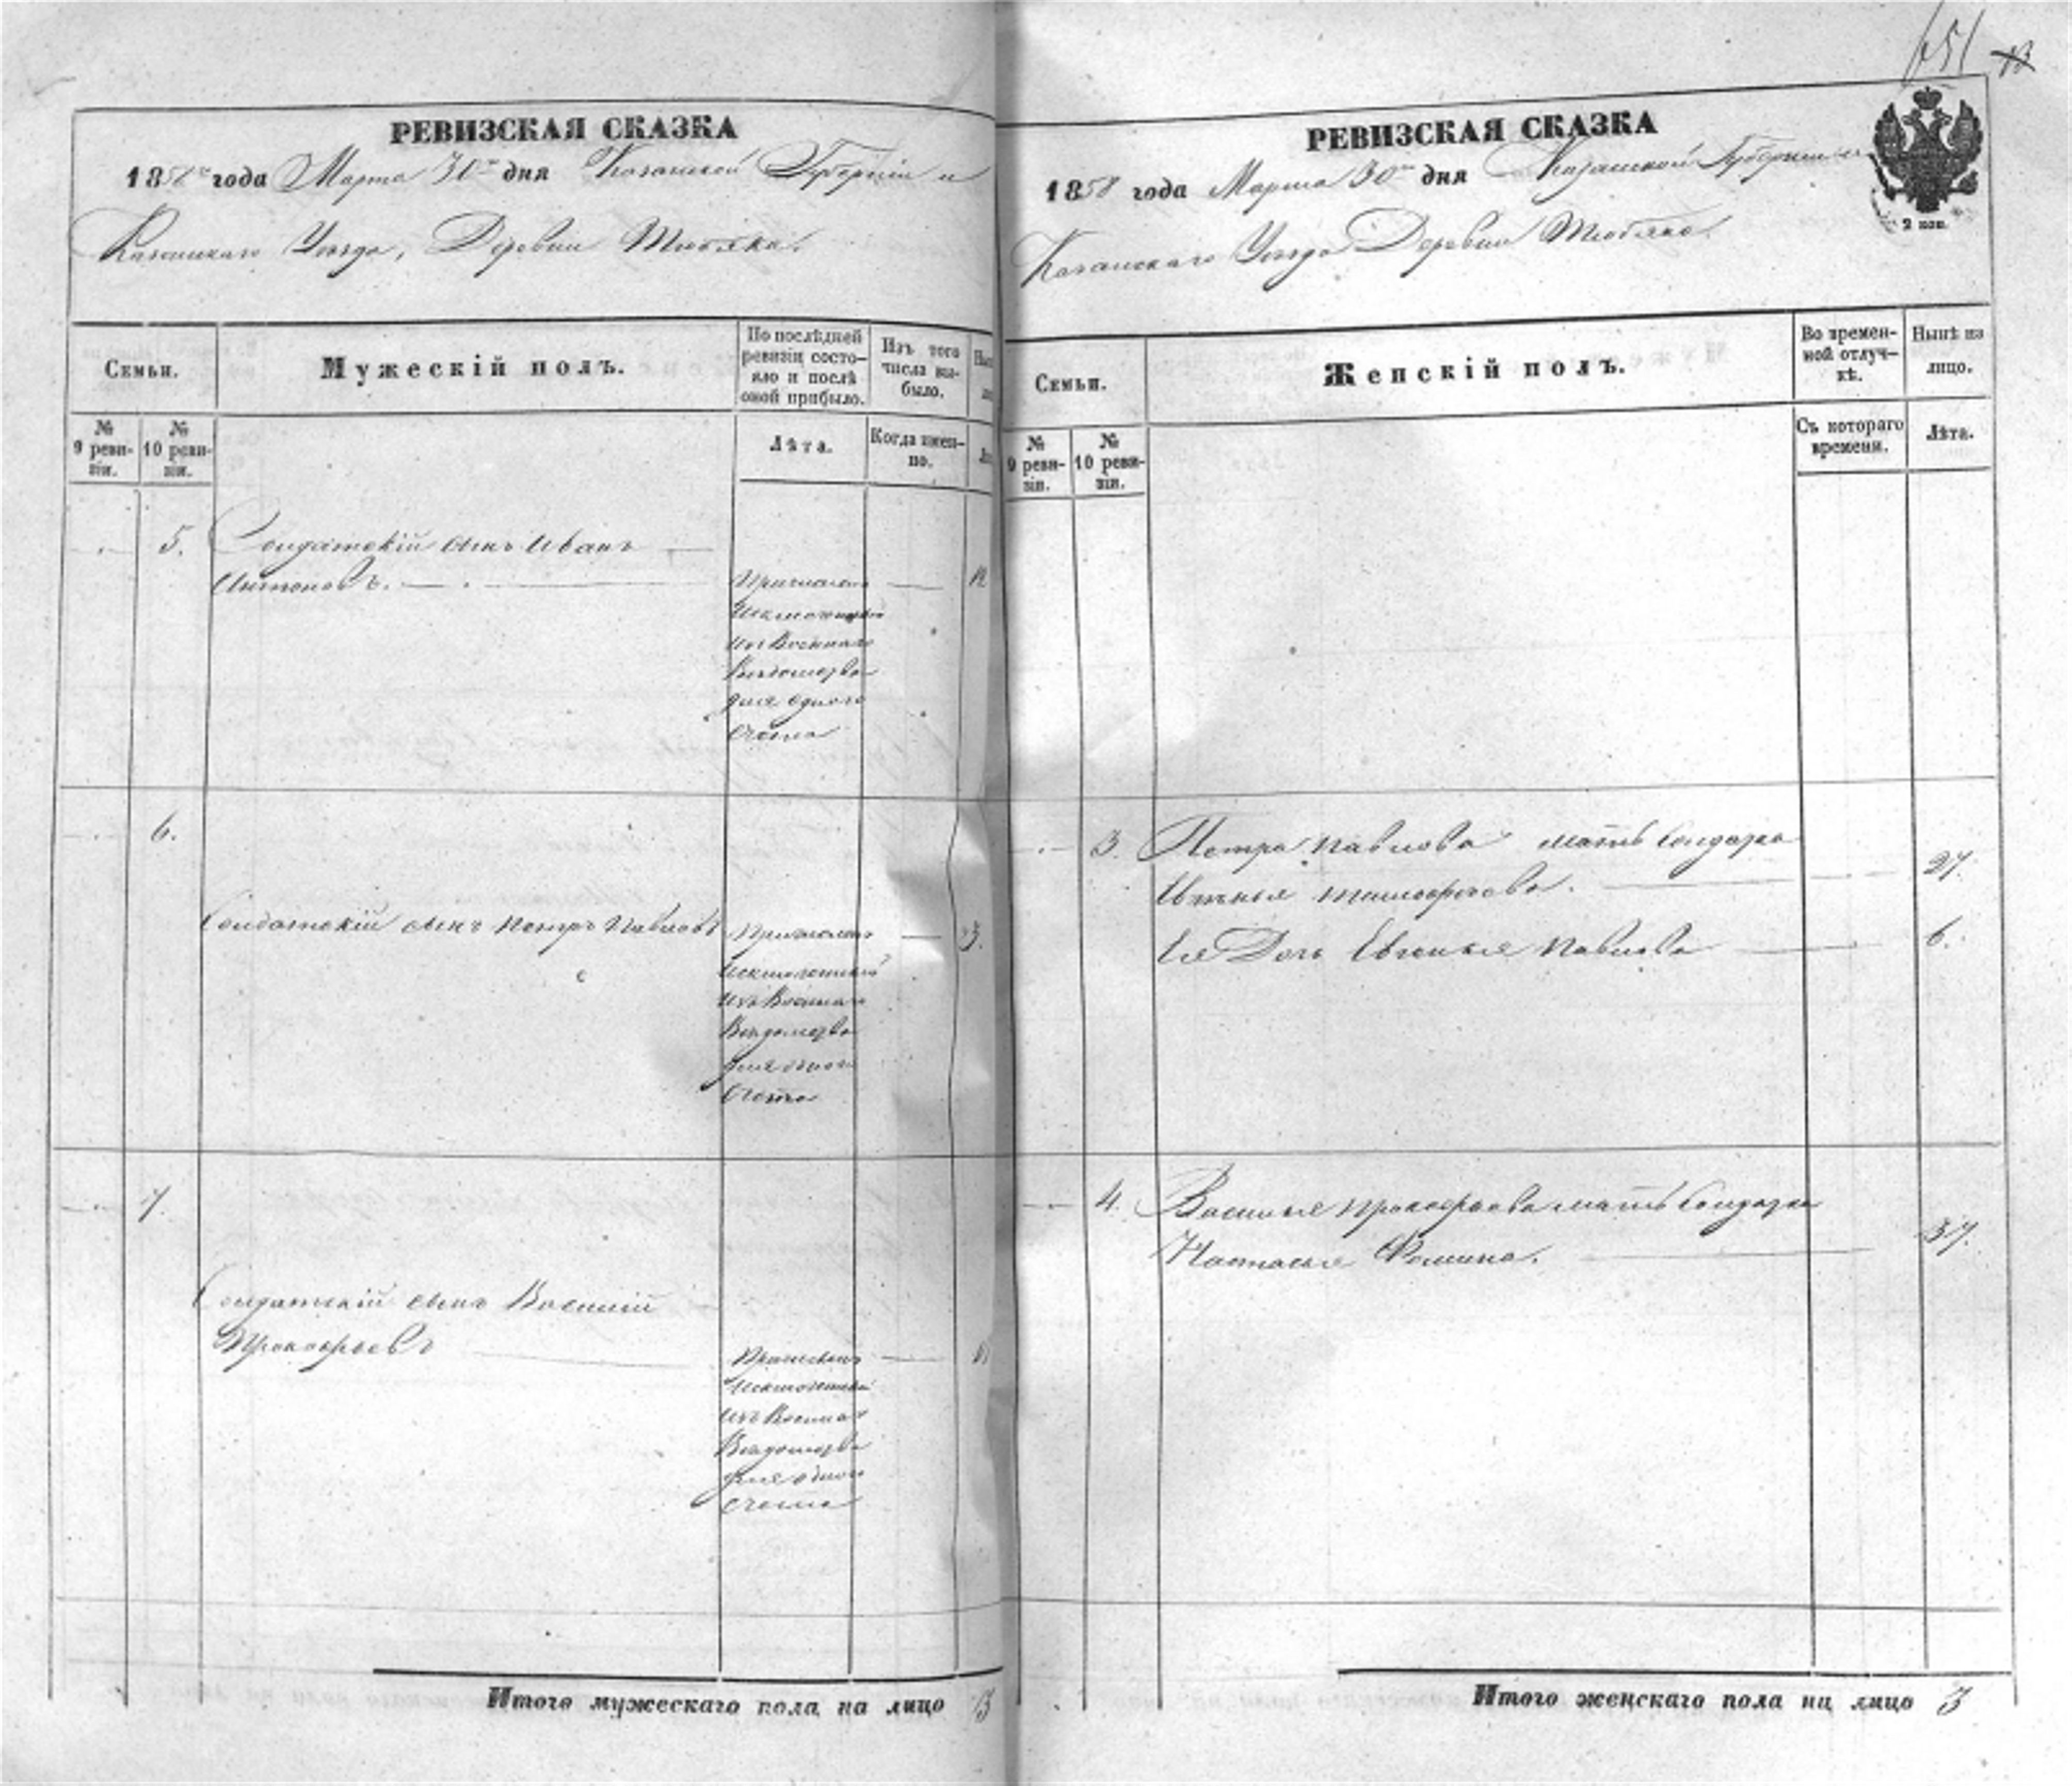 651 13
РЕВИЗСКАЯ СКАЗКА
1858 года Марта 30 дня Казанской Губерніи и
Казанскаго Уѣзда, Деревни Тюбяка.
Семьи.
Мужескій полъ.
По послѣдней ревизіи состояло и послѣ оной прибыло.
Изъ того числа выбыло.
№ 9 ревизіи.
№ 10 ревизіи.
Лѣта.
Когда именно.
5. Солдатскій сынъ Иванъ
Антоновъ.
Причисленъ
Исключенный
изъ Военнаго
Вѣдомства
для одного
счета
6.
Солдатскій сынъ Петръ Павловъ
Причисленъ
Исключенный
изъ Военнаго
Вѣдомства
для одного
счета
7.
Солдатскій сынъ Василій
Прокофьевъ
Причисленъ
Исключенный
изъ Военнаго
Вѣдомства
для одного
счета
Итого мужескаго пола на лицо 3
РЕВИЗСКАЯ СКАЗКА
1858 года Марта 30 дня Казанской Губерніи и
Казанскаго Уѣзда Деревни Тюбяка.
2 коп.
Семьи.
Женскій полъ.
Во временной отлучкѣ.
Нынѣ на лицо.
№ 9 ревизіи.
№ 10 ревизіи.
Съ котораго времени.
Лѣта.
3. Петра Павлова мать Солдатка
27.
Ея Дочь Евгенья Павлова 6.
4. Василья Прокофьева мать Солдатка
Настасья Фомина. 37.
Итого женскаго пола на лицо 3